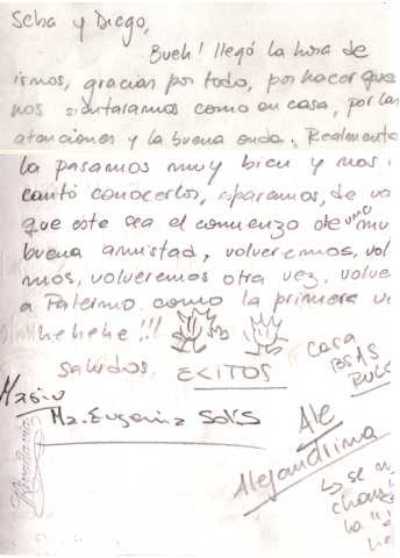 Seba y Diego,
Bueh! llegó la hora de
irnos, gracias por todo, por hacer que
nos sintaramos como en casa, por las
atenciones y la buena onda. Realmente
la pasamos muy bien y nos
cantó conocerlos, esparamos, de
que este sea el comienzo de una
buena amistad, volveremos, vol
mos, volveremos otra vez, volve
a Palermo como la primera
hehehe!!!
saludos. EXITOS
Ma. Eugenia Solis
casa
BSAS
Ale
Alejandrima
se
la